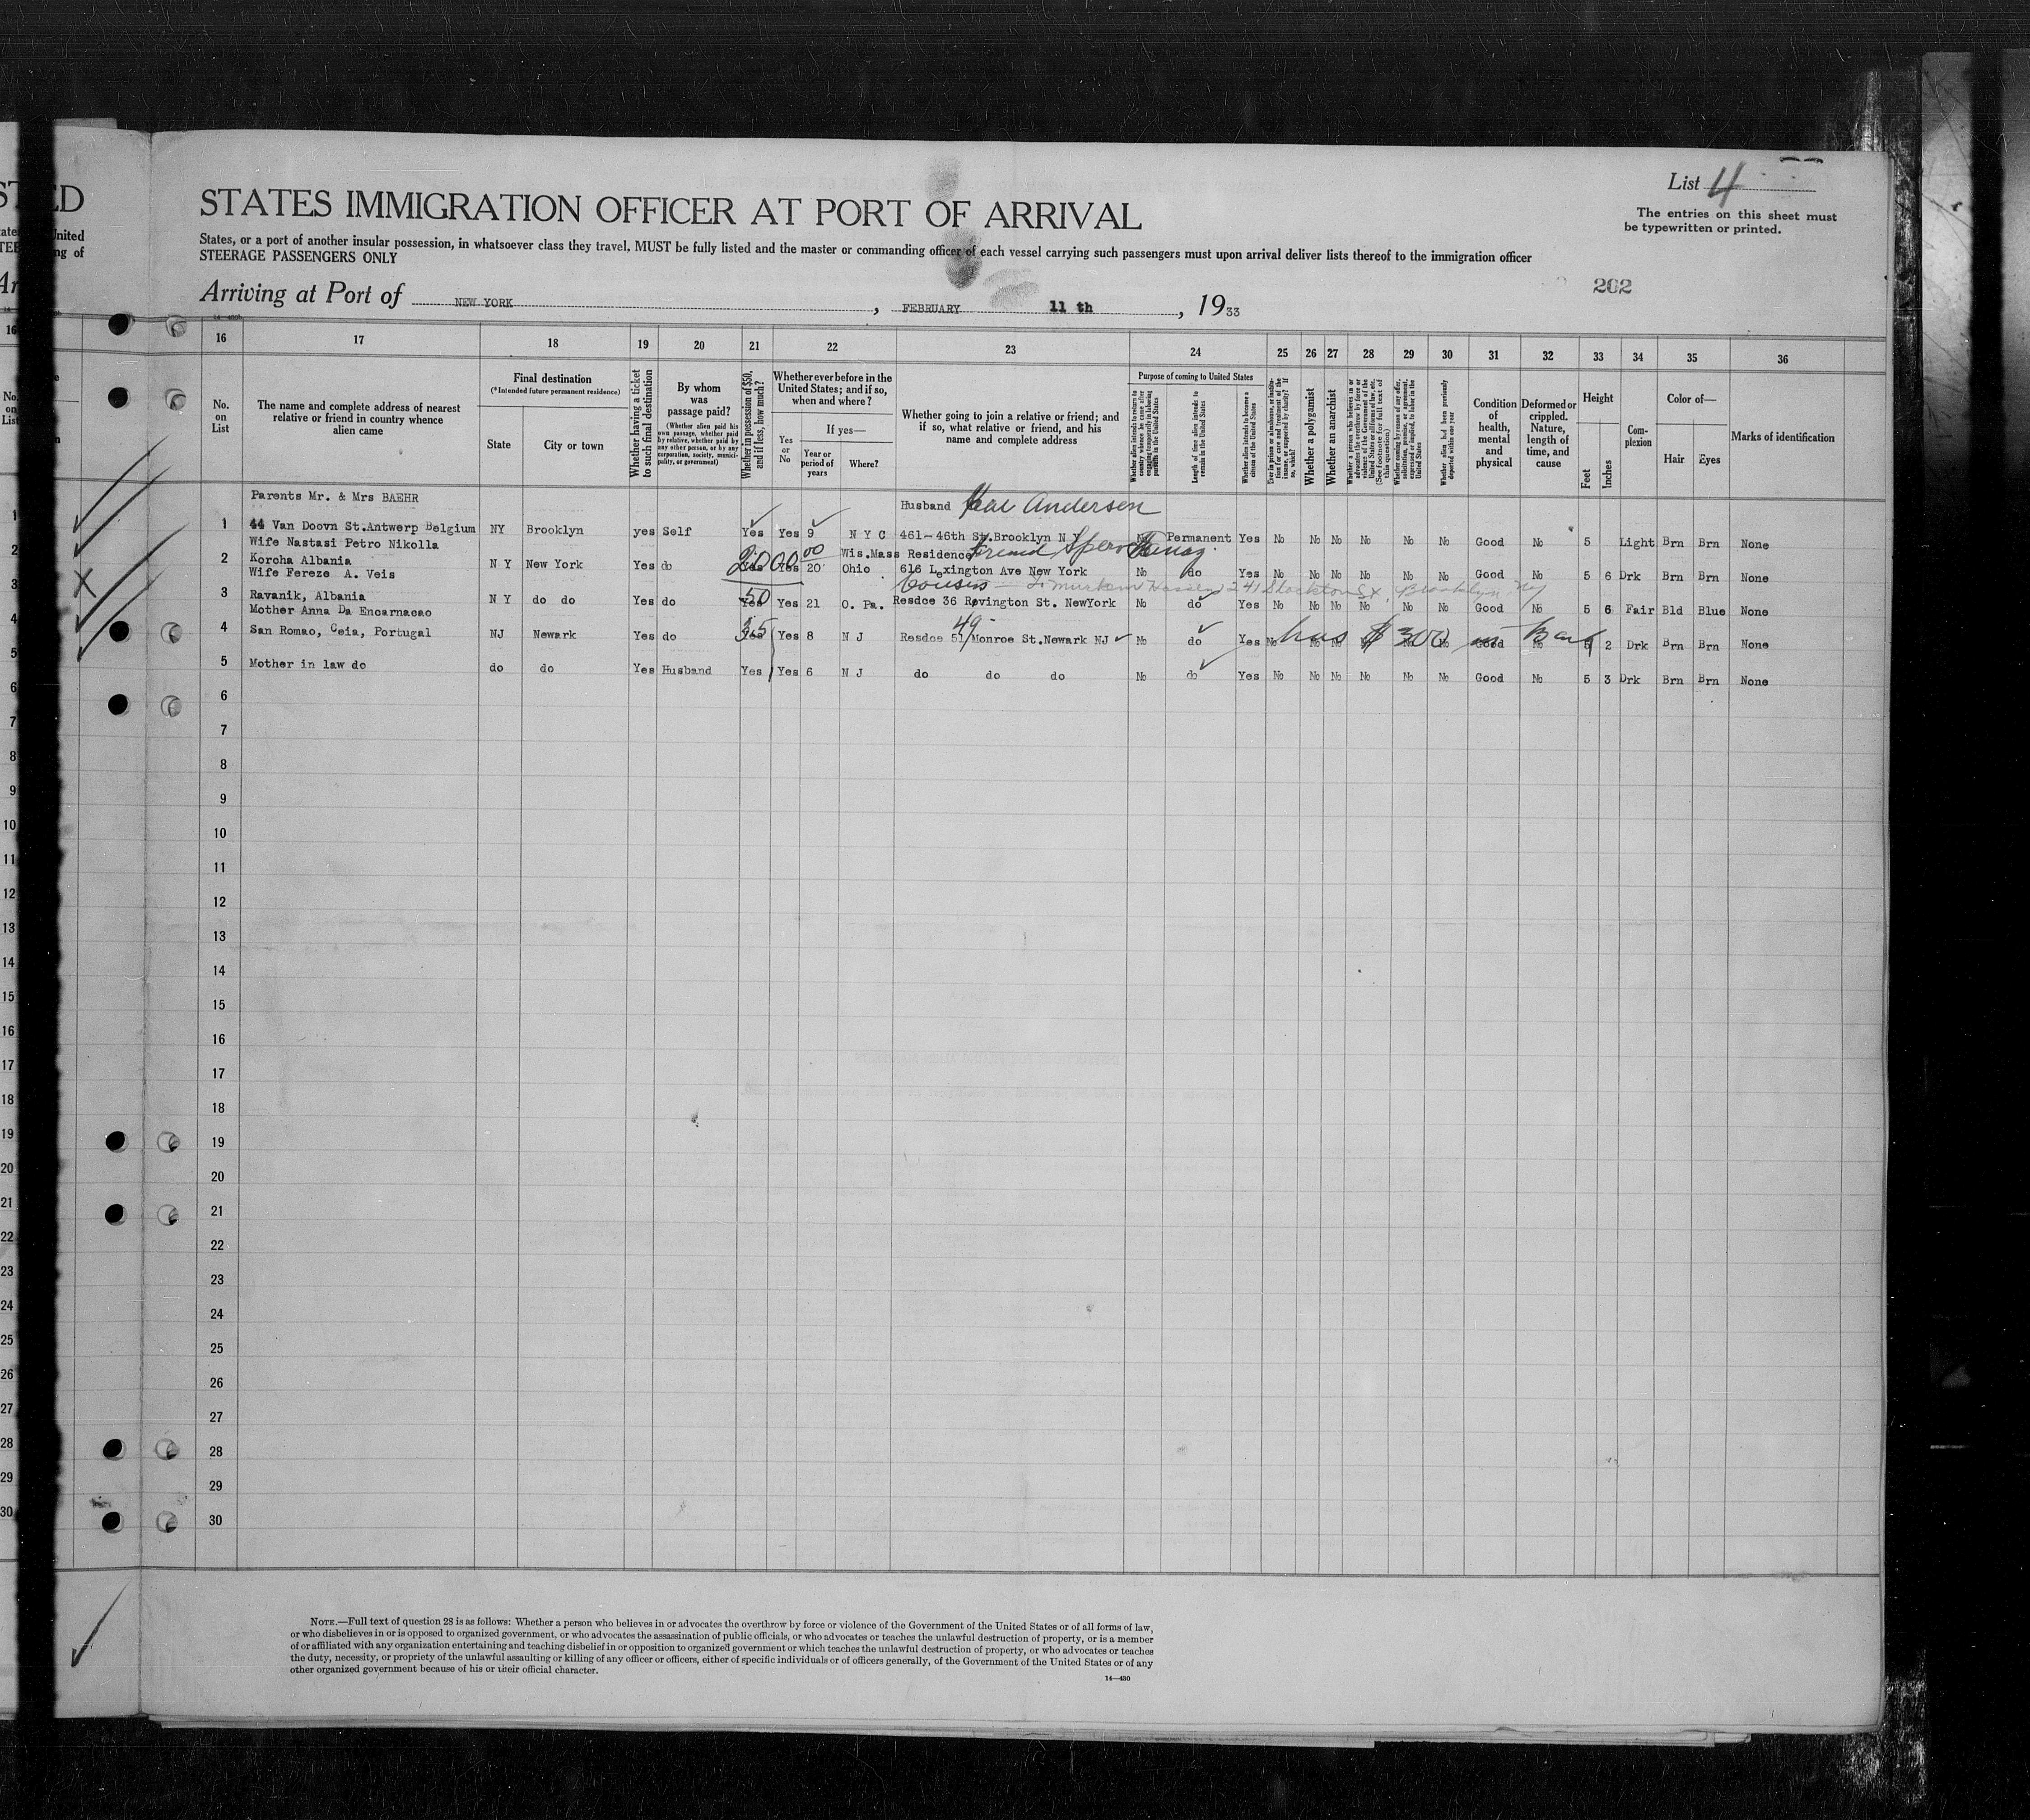 STED
List 4
The entries on this sheet must
be typewritten or printed.
STATES IMMIGRATION OFFICER AT PORT OF ARRIVAL
States, or a port of another insular possession, in whatsoever class they travel, MUST be fully listed and the master or commanding officer of each vessel carrying such passengers must upon arrival deliver lists thereof to the immigration officer
STEERAGE PASSENGERS ONLY
262
Arriving at Port of NEW YORK, FEBRUARY 11 th, 1933
16 17 18 19 20 21 22 23 24 25 26 27 28 29 30 31 32 33 34 35 36
No. on List
The name and complete address of nearest relative or friend in country whence alien came
Final destination
(*Intended future permanent residence)
State
City or town
Whether having a ticket to such final destination
By whom was passage paid?
(Whether alien paid his own passage, whether paid by relative, whether paid by any other person, or by any corporation, society, municipality, or government)
Whether in possession of $50, and if less, how much?
Whether ever before in the United States; and if so, when and where?
Yes or No
If yes—
Year or period of years
Where?
Whether going to join a relative or friend; and if so, what relative or friend, and his name and complete address
Purpose of coming to United States
Whether alien intends to return to country whence he came after engaging temporarily in laboring pursuits in the United States
Length of time alien intends to remain in the United States
Whether alien intends to become a citizen of the United States
Ever in prison or almshouse, or institution for care and treatment of the insane, or supported by charity? If so, which?
Whether a polygamist
Whether an anarchist
Whether a person who believes in or advocates the overthrow by force or violence of the Government of the United States or all forms of law, etc. (See footnote for full text of this question)
Whether coming by reason of any offer, solicitation, promise, or agreement, expressed or implied, to labor in the United States
Whether alien had been previously deported within one year
Condition of health, mental and physical
Deformed or crippled. Nature, length of time, and cause
Height
Feet
Inches
Complexion
Color of—
Hair
Eyes
Marks of identification
Parents Mr. & Mrs BAEHR Husband Andersen
1 44 Van Doovn St.Antwerp Belgium NY Brooklyn yes Self Yes Yes 9 N Y C 461-46th St.Brooklyn N Y No Permanent Yes No No No No No No Good No 5 Light Brn Brn None
Wife Nastasi Petro Nikolla Wis.Mass Residence friend
2 Korcha Albania N Y New York Yes do 2000 00 Yes Yes 20 Ohio 616 Lexington Ave New York No do Yes No No No No No No Good No 5 6 Drk Brn Brn None
Wife Fereze A. Veis Cousin 241 Stockton St, Brooklyn, NY
3 Ravanik, Albania N Y do do Yes do 50 Yes Yes 21 O. Pa. Resdce 36 Rovington St. NewYork No do Yes No No No No No No Good No 5 6 Fair Bld Blue None
Mother Anna Da Encarnacao 49
4 San Romao, Ceia, Portugal NJ Newark Yes do 35 Yes Yes 8 N J Resdce 51 Monroe St.Newark NJ No do Yes No No No No No No Good No 5 2 Drk Brn Brn None
has $ 300 in Bank
5 Mother in law do do do Yes Husband Yes Yes 6 N J do do do No do Yes No No No No No No Good No 5 3 Drk Brn Brn None
6
7
8
9
10
11
12
13
14
15
16
17
18
19
20
21
22
23
24
25
26
27
28
29
30
NOTE.—Full text of question 28 is as follows: Whether a person who believes in or advocates the overthrow by force or violence of the Government of the United States or of all forms of law,
or who disbelieves in or is opposed to organized government, or who advocates the assassination of public officials, or who advocates or teaches the unlawful destruction of property, or is a member
of or affiliated with any organization entertaining and teaching disbelief in or opposition to organized government or which teaches the unlawful destruction of property, or who advocates or teaches
the duty, necessity, or propriety of the unlawful assaulting or killing of any officer or officers, either of specific individuals or of officers generally, of the Government of the United States or of any
other organized government because of his or their official character.
14—430